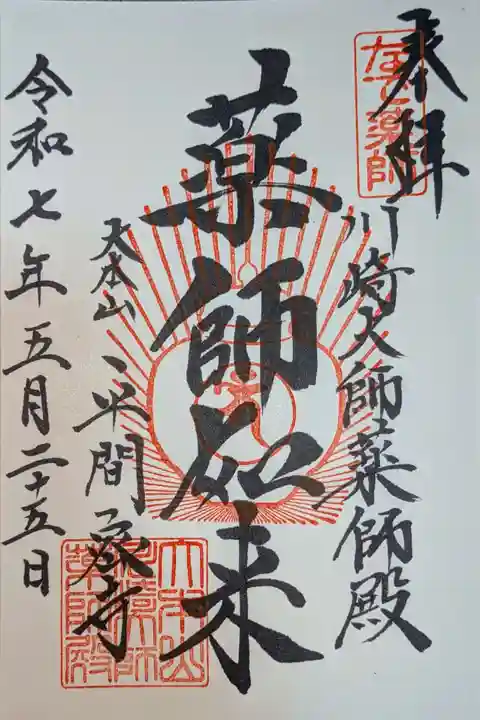 奉拝
なで薬師
川崎大師薬師殿
薬師如来
大本山 平間寺
令和七年五月二十五日